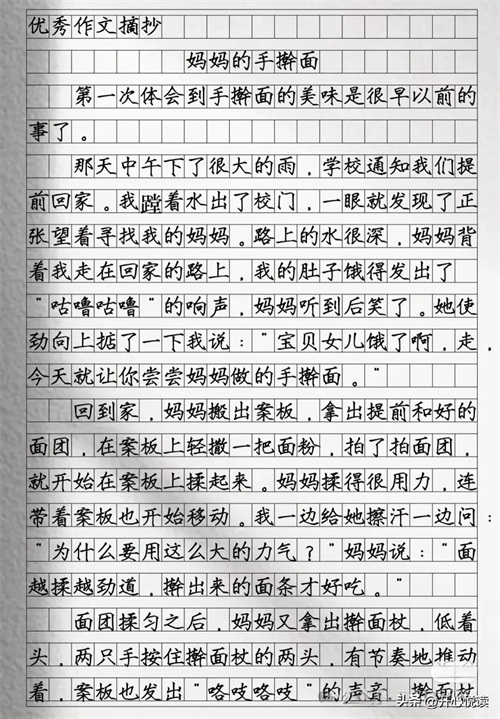 优秀作文摘抄
妈妈的手擀面
第一次体会到手擀面的美味是很早以前的
事了。
那天中午下了很大的雨，学校通知我们提
前回家。我蹚着水出了校门，一眼就发现了正
张望着寻找我的妈妈。路上的水很深，妈妈背
着我走在回家的路上，我的肚子饿得发出了
“咕噜咕噜“的响声，妈妈听到后笑了。她使
劲向上掂了一下我说：“宝贝女儿饿了啊，走，
今天就让你尝尝妈妈做的手擀面。“
回到家，妈妈搬出案板，拿出提前和好的
面团，在案板上轻撒一把面粉，拍了拍面团，
就开始在案板上揉起来。妈妈揉得很用力，连
带着案板也开始移动。我一边给她擦汗一边问：
“为什么要用这么大的力气？“妈妈说：“面
越揉越劲道，擀出来的面条才好吃。“
面团揉匀之后，妈妈又拿出擀面杖，低着
头，两只手按住擀面杖的两头，有节奏地推动
着，案板也发出“咯吱咯吱“的声音，擀面杖
头条@开心悦读